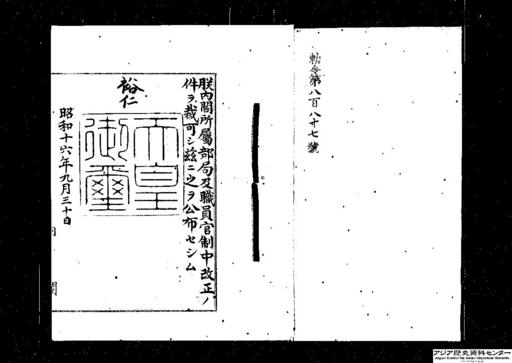 勅令第八百八十七號
朕内閣所屬部局及職員官制中改正ノ
件ヲ裁可シ茲ニ之ヲ公布セシム
裕仁
天皇
御璽
昭和十六年九月三十日
内閣
アジア歴史資料センター
Japan Center for Asian Historical Records